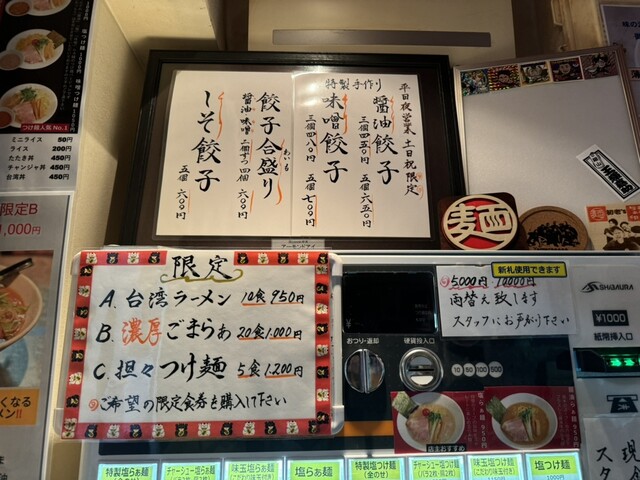 平日夜営業 土日祝限定
特製手作り
醤油餃子
三個 四五〇円 五個 六五〇円
味噌餃子
三個 四八〇円 五個 七〇〇円
餃子合盛り
醤油 味噌 二個ずつ 四個 六〇〇円
しそ餃子
五個 六〇〇円
つけ麺人気No.1
ミニライス 50円
ライス 200円
たたき丼 450円
チャンジャ丼 450円
台湾丼 450円
限定B
1,000円
限定
A. 台湾ラーメン 10食 950円
B. 濃厚ごまらぁ 20食 1.000円
C. 担々つけ麺 5食 1.200円
ご希望の限定食券を購入して下さい
麺
新札使用できます
5,000円 10000円
両替え致します
スタッフにお声がけ下さい
おつり・返却
硬貨投入口
10 50 100 500
SHIBAURA
¥1000
紙幣挿入口
店主おすすめ
特製塩らぁ麺
(金のせ)
チャーシュー塩らぁ麺
(バラ2枚・肩2枚)
味玉塩らぁ麺
(こだわり味玉付き)
塩らぁ麺
特製塩つけ麺
(金のせ)
チャーシュー塩つけ麺
(バラ2枚・肩2枚)
味玉塩つけ麺
(こだわり味玉付き)
塩つけ麺